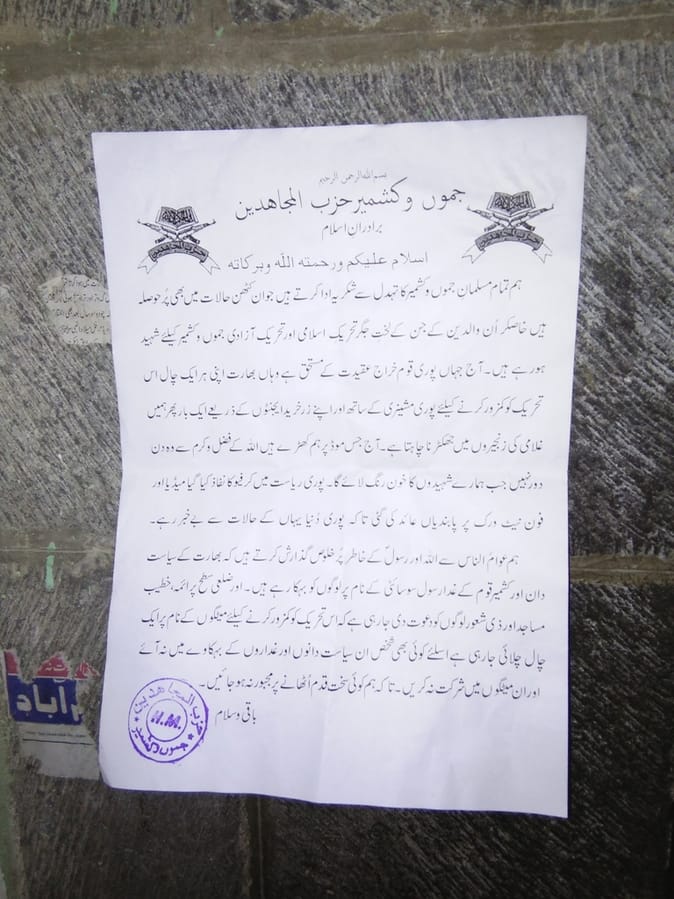 بسم اللہ الرحمن الرحیم
جموں وکشمیر حزب المجاہدین
برادران اسلام
اسلام علیکم ورحمتہ اللہ وبرکاتہ
ہم تمام مسلمان جموں وکشمیر کا تہدل سے شکریہ ادا کرتے ہیں جو ان کٹھن حالات میں بھی پُر حوصلہ
ہیں خاصکر اُن والدین کے جن کے لخت جگر تحریک اسلامی اور تحریک آزادی جموں وکشمیر کیلئے شہید
ہورہے ہیں۔ آج جہاں پوری قوم خراج عقیدت کے مستحق ہے وہاں بھارت اپنی ہر ایک چال اس
تحریک کو کمزور کرنے کیلئے پوری مشینری کے ساتھ اور اپنے زرخرید ایجنٹوں کے ذریعے ایک بار پھر ہمیں
غلامی کی زنجیروں میں جھکڑنا چاہتا ہے۔ آج جس موڈ پر ہم کھڑے ہیں اللہ کے فضل وکرم سے وہ دن
دور نہیں جب ہمارے شہیدوں کا خون رنگ لائے گا۔ پوری ریاست میں کرفیو کا نفاذ کیا گیا میڈیا اور
فون نیٹ ورک پر پابندیاں عائد کی گئی تاکہ پوری دُنیا یہاں کے حالات سے بے خبر رہے۔
ہم عوام الناس سے اللہ اور رسولؐ کے خاطر پُر خلوص گذارش کرتے ہیں کہ بھارت کے سیاست
دان اور کشمیر قوم کے غدار سول سوسائٹی کے نام پر لوگوں کو بہکا رہے ہیں۔ اور ضلعی سطح پر ائمہ، خطیب
مساجد اور ذی شعور لوگوں کو دعوت دی جارہی ہے کہ اس تحریک کو کمزور کرنے کیلئے میٹنگوں کے نام پر ایک
چال چلائی جارہی ہے اسلئے کوئی بھی شخص ان سیاست دانوں اور غداروں کے بہکاوے میں نہ آئے
اور ان میٹنگوں میں شرکت نہ کریں۔ تاکہ ہم کوئی سخت قدم اُٹھانے پر مجبور نہ ہوجائیں۔
باقی وسلام
حزب المجاھدین
H.M.
جموں وکشمیر